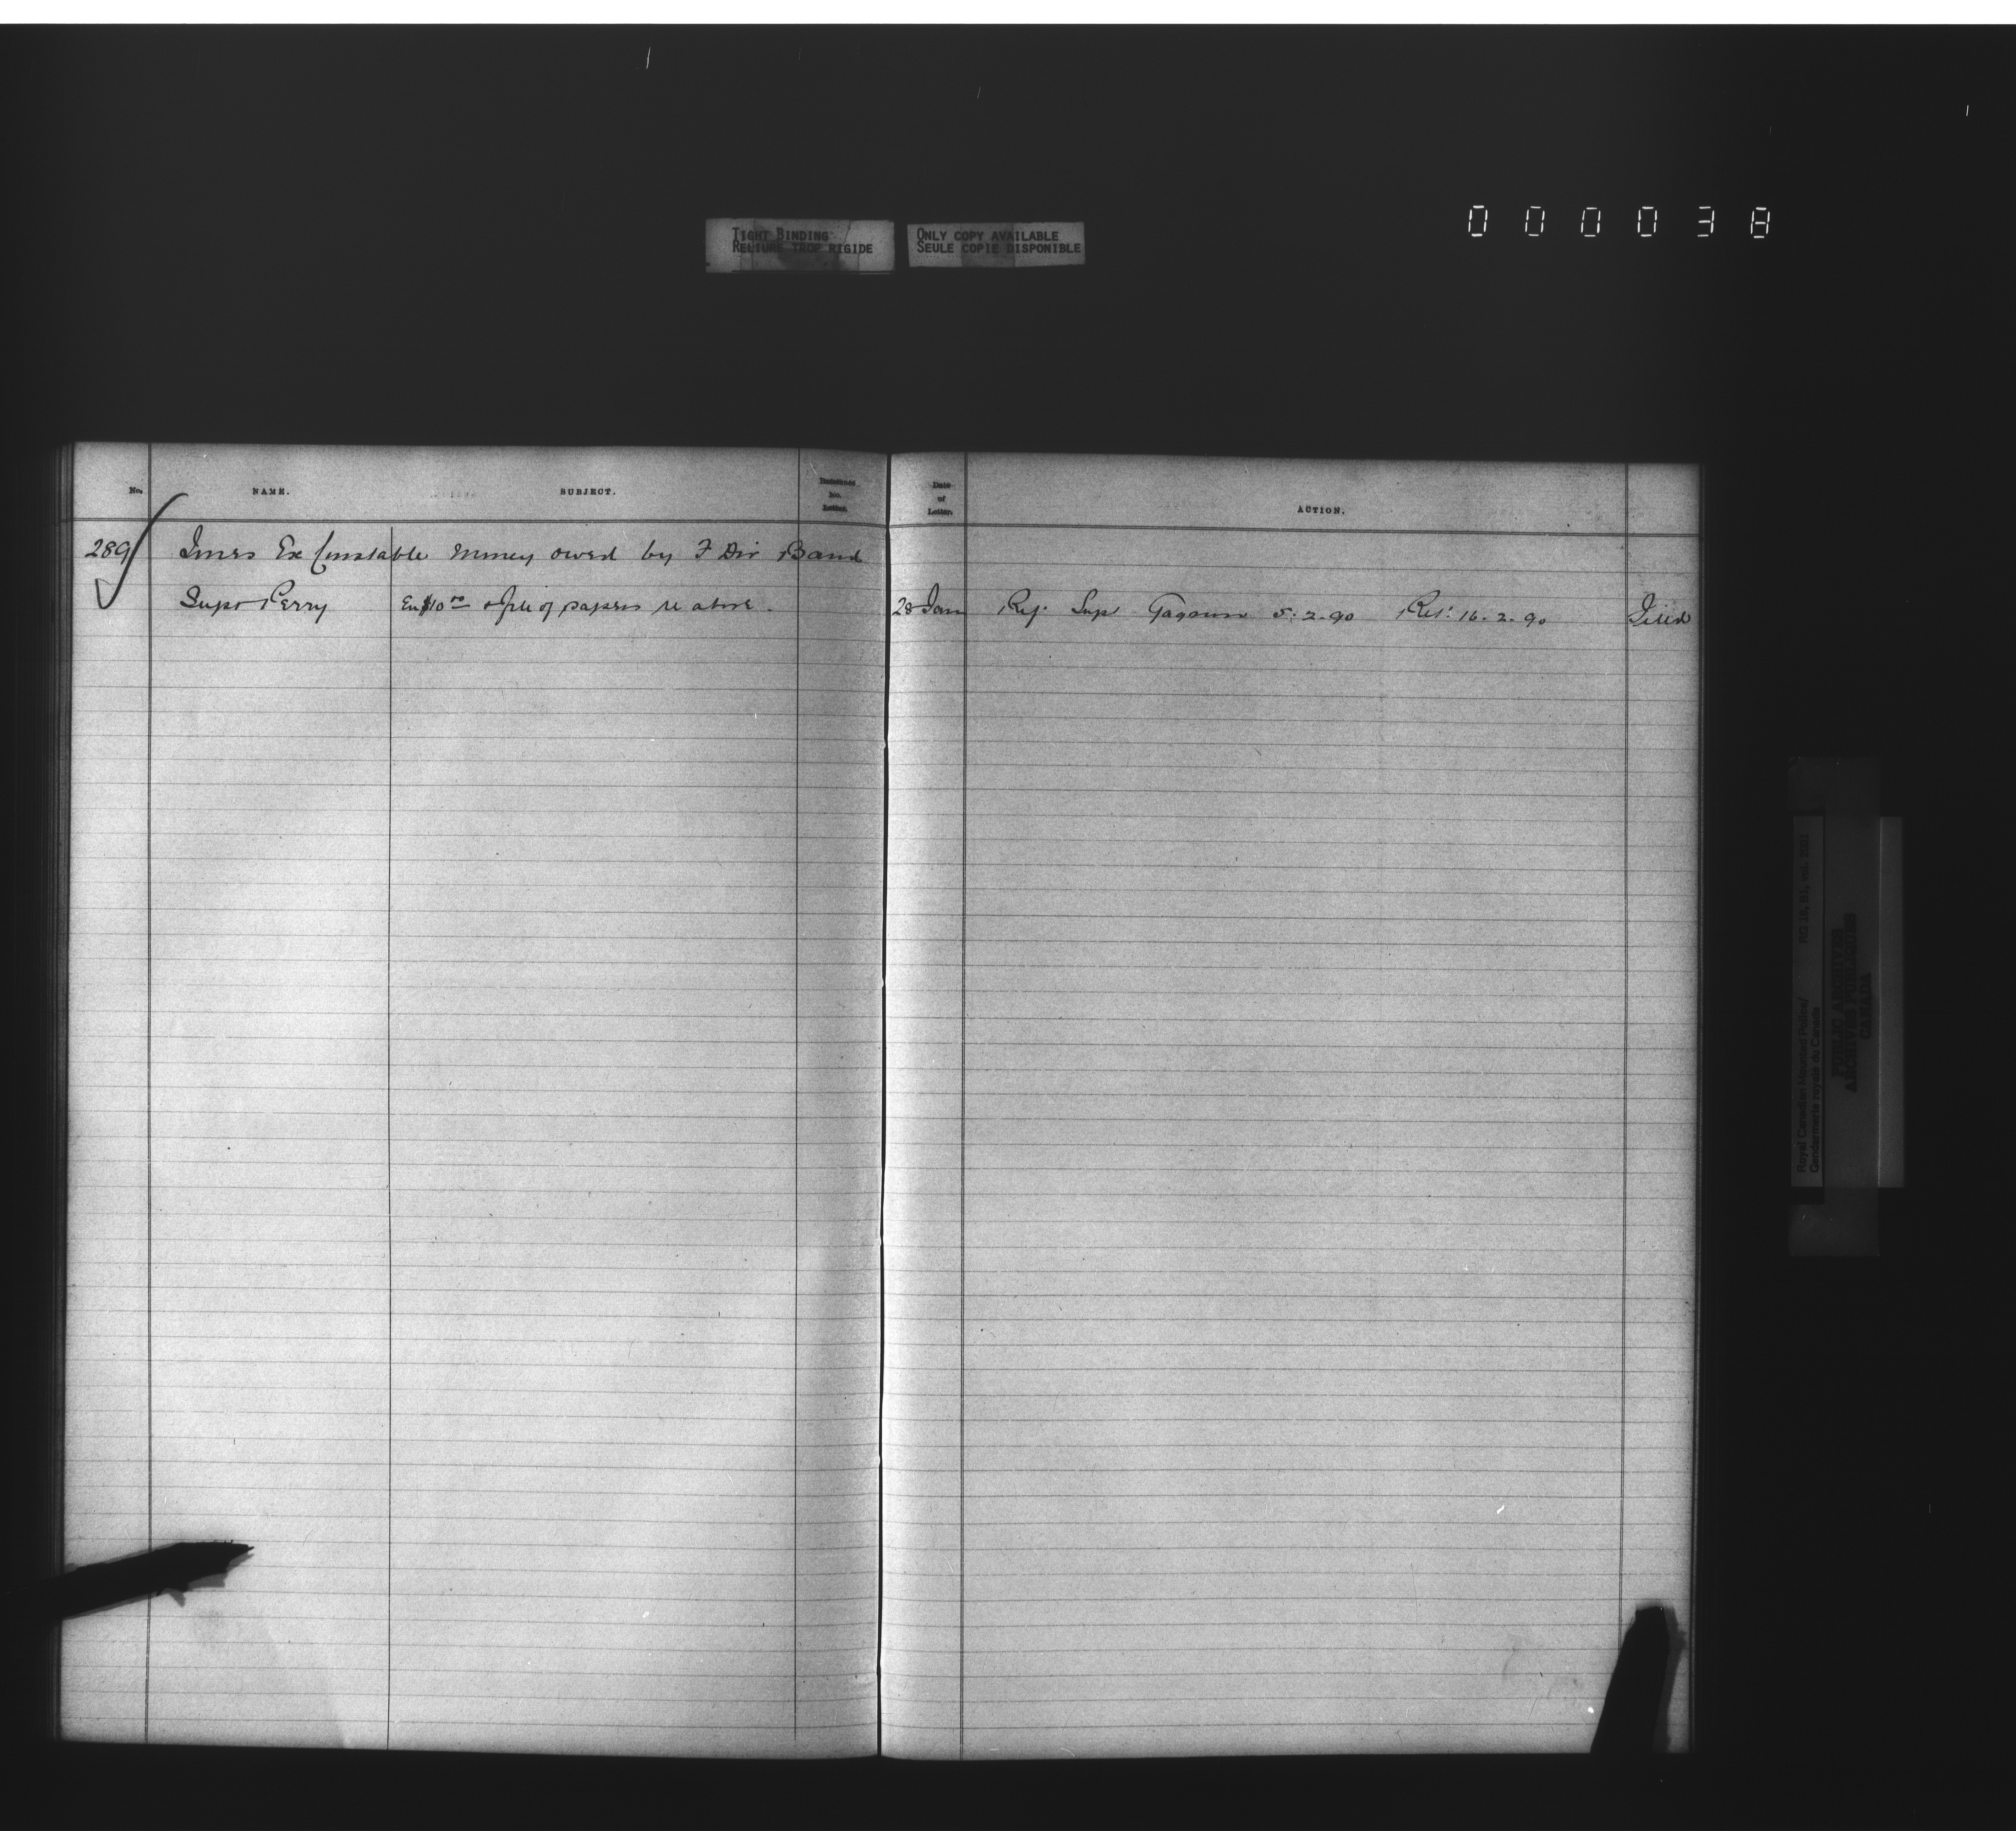 000038
TIGHT BINDING
RELIURE TROP RIGIDE
ONLY COPY AVAILABLE
SEULE COPIE DISPONIBLE
No. NAME. SUBJECT. No. Letter. Date of Letter. ACTION.
289 Ex Constable Money owed by F Div Band
Supt Perry En $10.00 & file of papers re above. 28 Jan Ref. Supt Gagnon 5.2.90 Ret. 16.2.90 Filed
Royal Canadian Mounted Police/ RG 18, B1, vol.
Gendarmerie royale du Canada
PUBLIC ARCHIVES
ARCHIVES PUBLIQUES
CANADA